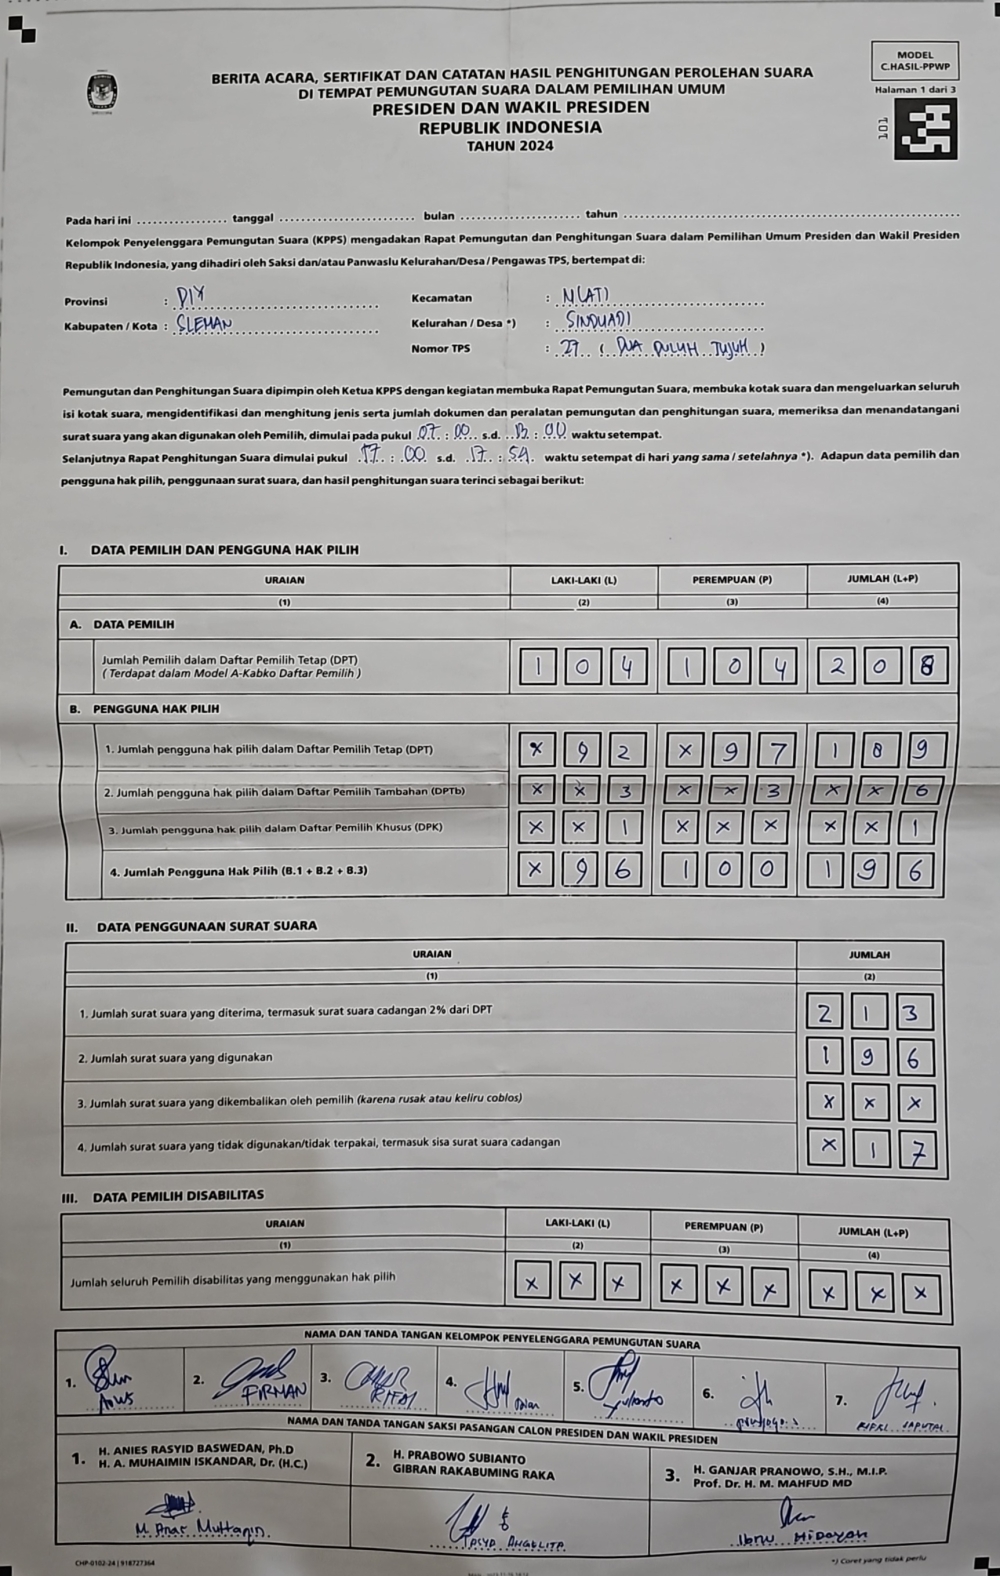 MODEL
C.HASIL-PPWP
Halaman 1 dari 3
101
BERITA ACARA, SERTIFIKAT DAN CATATAN HASIL PENGHITUNGAN PEROLEHAN SUARA
DI TEMPAT PEMUNGUTAN SUARA DALAM PEMILIHAN UMUM
PRESIDEN DAN WAKIL PRESIDEN
REPUBLIK INDONESIA
TAHUN 2024
Pada hari ini ................ tanggal ........................ bulan ..................... tahun ............................................................
Kelompok Penyelenggara Pemungutan Suara (KPPS) mengadakan Rapat Pemungutan dan Penghitungan Suara dalam Pemilihan Umum Presiden dan Wakil Presiden
Republik Indonesia, yang dihadiri oleh Saksi dan/atau Panwaslu Kelurahan/Desa / Pengawas TPS, bertempat di:
Provinsi : DIY Kecamatan : MLATI
Kabupaten / Kota : SLEMAN Kelurahan / Desa *) : SINDUADI
Nomor TPS : 27 ( DUA PULUH TUJUH )
Pemungutan dan Penghitungan Suara dipimpin oleh Ketua KPPS dengan kegiatan membuka Rapat Pemungutan Suara, membuka kotak suara dan mengeluarkan seluruh
isi kotak suara, mengidentifikasi dan menghitung jenis serta jumlah dokumen dan peralatan pemungutan dan penghitungan suara, memeriksa dan menandatangani
surat suara yang akan digunakan oleh Pemilih, dimulai pada pukul 07 : 00 s.d. 13 : 00 waktu setempat.
Selanjutnya Rapat Penghitungan Suara dimulai pukul : 00 s.d. 17 : waktu setempat di hari yang sama / setelahnya *). Adapun data pemilih dan
pengguna hak pilih, penggunaan surat suara, dan hasil penghitungan suara terinci sebagai berikut:
I. DATA PEMILIH DAN PENGGUNA HAK PILIH
URAIAN LAKI-LAKI (L) PEREMPUAN (P) JUMLAH (L+P)
(1) (2) (3) (4)
A. DATA PEMILIH
Jumlah Pemilih dalam Daftar Pemilih Tetap (DPT) 1 0 4 1 0 4 2 0 8
( Terdapat dalam Model A-Kabko Daftar Pemilih )
B. PENGGUNA HAK PILIH
1. Jumlah pengguna hak pilih dalam Daftar Pemilih Tetap (DPT) X 9 2 X 9 7 1 8 9
2. Jumlah pengguna hak pilih dalam Daftar Pemilih Tambahan (DPTb) X X 3 X X 3 X X 6
3. Jumlah pengguna hak pilih dalam Daftar Pemilih Khusus (DPK) X X 1 X X X X X 1
4. Jumlah Pengguna Hak Pilih (B.1 + B.2 + B.3) X 9 6 1 0 0 1 9 6
II. DATA PENGGUNAAN SURAT SUARA
URAIAN JUMLAH
(1) (2)
1. Jumlah surat suara yang diterima, termasuk surat suara cadangan 2% dari DPT 2 1 3
2. Jumlah surat suara yang digunakan 1 9 6
3. Jumlah surat suara yang dikembalikan oleh pemilih (karena rusak atau keliru coblos) X X X
4. Jumlah surat suara yang tidak digunakan/tidak terpakai, termasuk sisa surat suara cadangan X 1 7
III. DATA PEMILIH DISABILITAS
URAIAN LAKI-LAKI (L) PEREMPUAN (P) JUMLAH (L+P)
(1) (2) (3) (4)
Jumlah seluruh Pemilih disabilitas yang menggunakan hak pilih X X X X X X X X X
NAMA DAN TANDA TANGAN KELOMPOK PENYELENGGARA PEMUNGUTAN SUARA
1. 2. FIRMAN 3. 4. 5. 6. 7.
NAMA DAN TANDA TANGAN SAKSI PASANGAN CALON PRESIDEN DAN WAKIL PRESIDEN
1. H. ANIES RASYID BASWEDAN, Ph.D
H. A. MUHAIMIN ISKANDAR, Dr. (H.C.)
2. H. PRABOWO SUBIANTO
GIBRAN RAKABUMING RAKA
3. H. GANJAR PRANOWO, S.H., M.I.P.
Prof. Dr. H. M. MAHFUD MD
M. Anas Muttaqin Ibnu Hidayah
CHP-0102-24 | 918727364
*) Coret yang tidak perlu